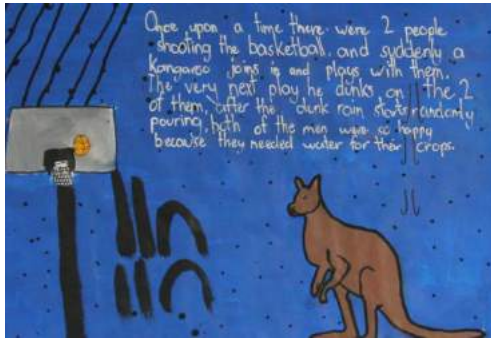 Once upon a time there were 2 people
shooting the basketball, and suddenly a
kangaroo joins in and plays with them.
The very next play he dunks on the 2
of them, after the dunk rain starts randomly
pouring, both of the men were so happy
because they needed water for their crops.